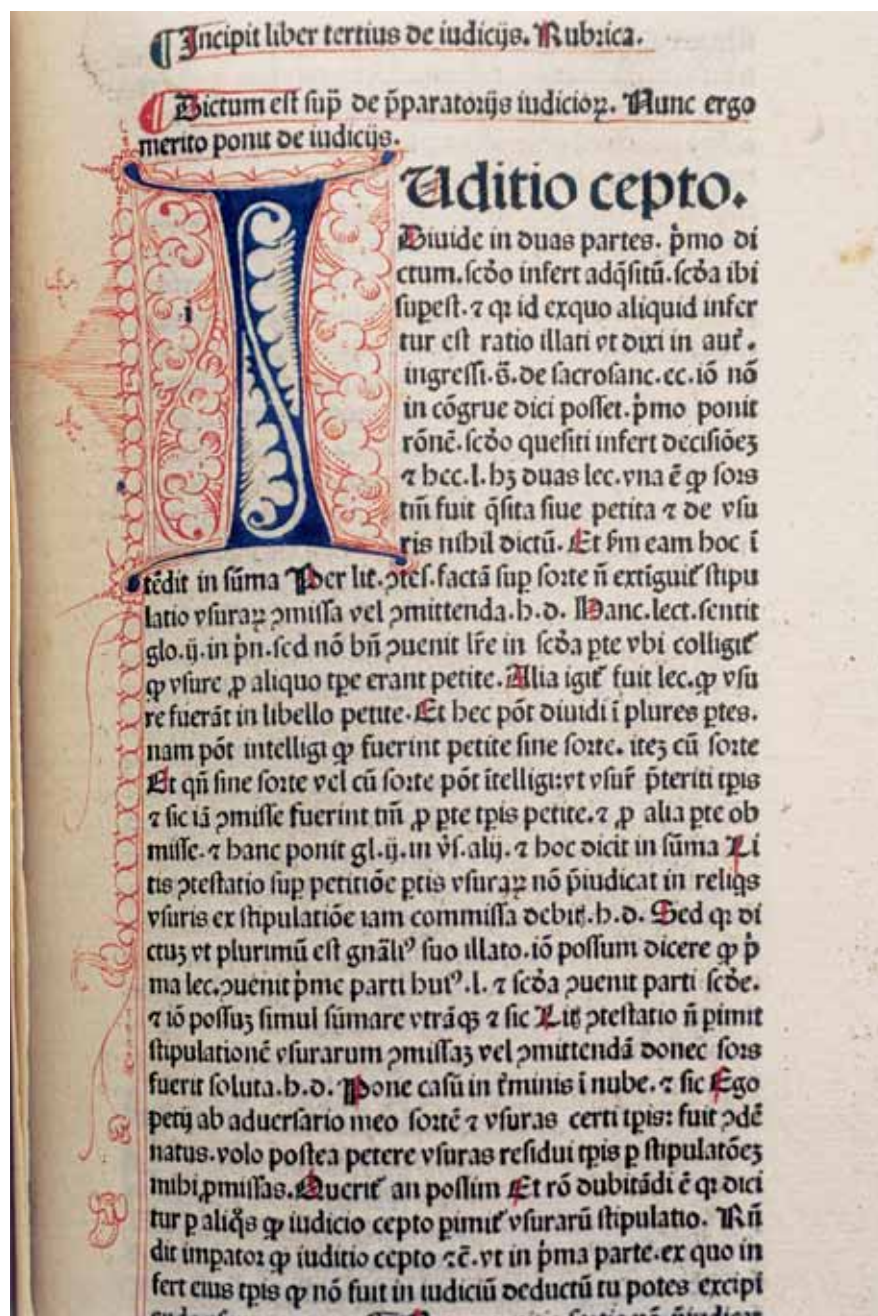 Incipit liber tertius de iudicijs. Rubrica.
Dictum est sup̄ de p̄paratorijs iudicioꝝ. Nunc ergo
merito ponit de iudicijs.
I
i
Uditio cepto.
Diuide in duas partes. p̄mo di
ctum. scd̄o infert adq̄sitū. scd̄a ibi
supest. ⁊ qꝛ id exquo aliquid infer
tur est ratio illati vt dixi in aut̄.
ingressi. s̄. de sacrosanc. ec. iō nō
in cōgrue dici posset. p̄mo ponit
rōnē. scd̄o quesiti infert decisiōeꝫ
⁊ hec. l. hꝫ duas lec. vna ē ꝙ sors
tm̄ fuit q̄sita siue petita ⁊ de vsu
ris nihil dictū. Et sm̄ eam hoc ī
tēdit in sūma Per lit. ꝯtes. factā suꝑ sorte n̄ extīguit̄ stipu
latio vsuraꝝ ꝯmissa vel ꝯmittenda. h. d. Hanc. lect. sentit
glo. ij. in p̄n. sed nō bn̄ ꝯuenit lr̄e in scd̄a ꝑte vbi colligit̄
ꝙ vsure ꝓ aliquo tꝑe erant petite. Alia igit̄ fuit lec. ꝙ vsu
re fuerāt in libello petite. Et hec pōt diuidi ī plures ꝑtes.
nam pōt intelligi ꝙ fuerint petite sine sorte. iteꝫ cū sorte
Et qn̄ sine sorte vel cū sorte pōt ītelligi: vt vsur̄ p̄teriti tꝑis
⁊ sic iā ꝯmisse fuerint tm̄ ꝓ ꝑte tꝑis petite. ⁊ ꝓ alia ꝑte ob
misse. ⁊ hanc ponit gl. ij. in v̄s. alij. ⁊ hoc dicit in sūma Li
tis ꝯtestatio suꝑ petitiōe ꝑtis vsuraꝝ nō p̄iudicat in reliq̄s
vsuris ex stipulatiōe iam commissa debit̄. h. d. Sed qꝛ di
ctuꝫ vt plurimū est gn̄aliꝰ suo illato. iō possum dicere ꝙ p̄
ma lec. ꝯuenit p̄me parti huiꝰ. l. ⁊ scd̄a ꝯuenit parti scd̄e.
⁊ iō possuꝫ simul sūmare vtrāqꝫ ⁊ sic Lit̄ ꝯtestatio n̄ ꝑimit
stipulationē vsurarum ꝯmissaꝫ vel ꝯmittendā donec sors
fuerit soluta. h. d. Pone casū in t̄minis ī nube. ⁊ sic Ego
petij ab aduersario meo sortē ⁊ vsuras certi tꝑis: fuit ꝯdē
natus. volo postea petere vsuras residui tꝑis ꝑ stipulatōeꝫ
mihi ꝓmissas. Querit̄ an possim Et rō dubitādi ē qꝛ dici
tur ꝑ aliq̄s ꝙ iudicio cepto ꝑimit̄ vsurarū stipulatio. Rn̄
dit imꝑator ꝙ iuditio cepto ⁊c̄. vt in p̄ma parte. ex quo in
fert eius tꝑis ꝙ nō fuit in iudiciū deductū tu potes excipi